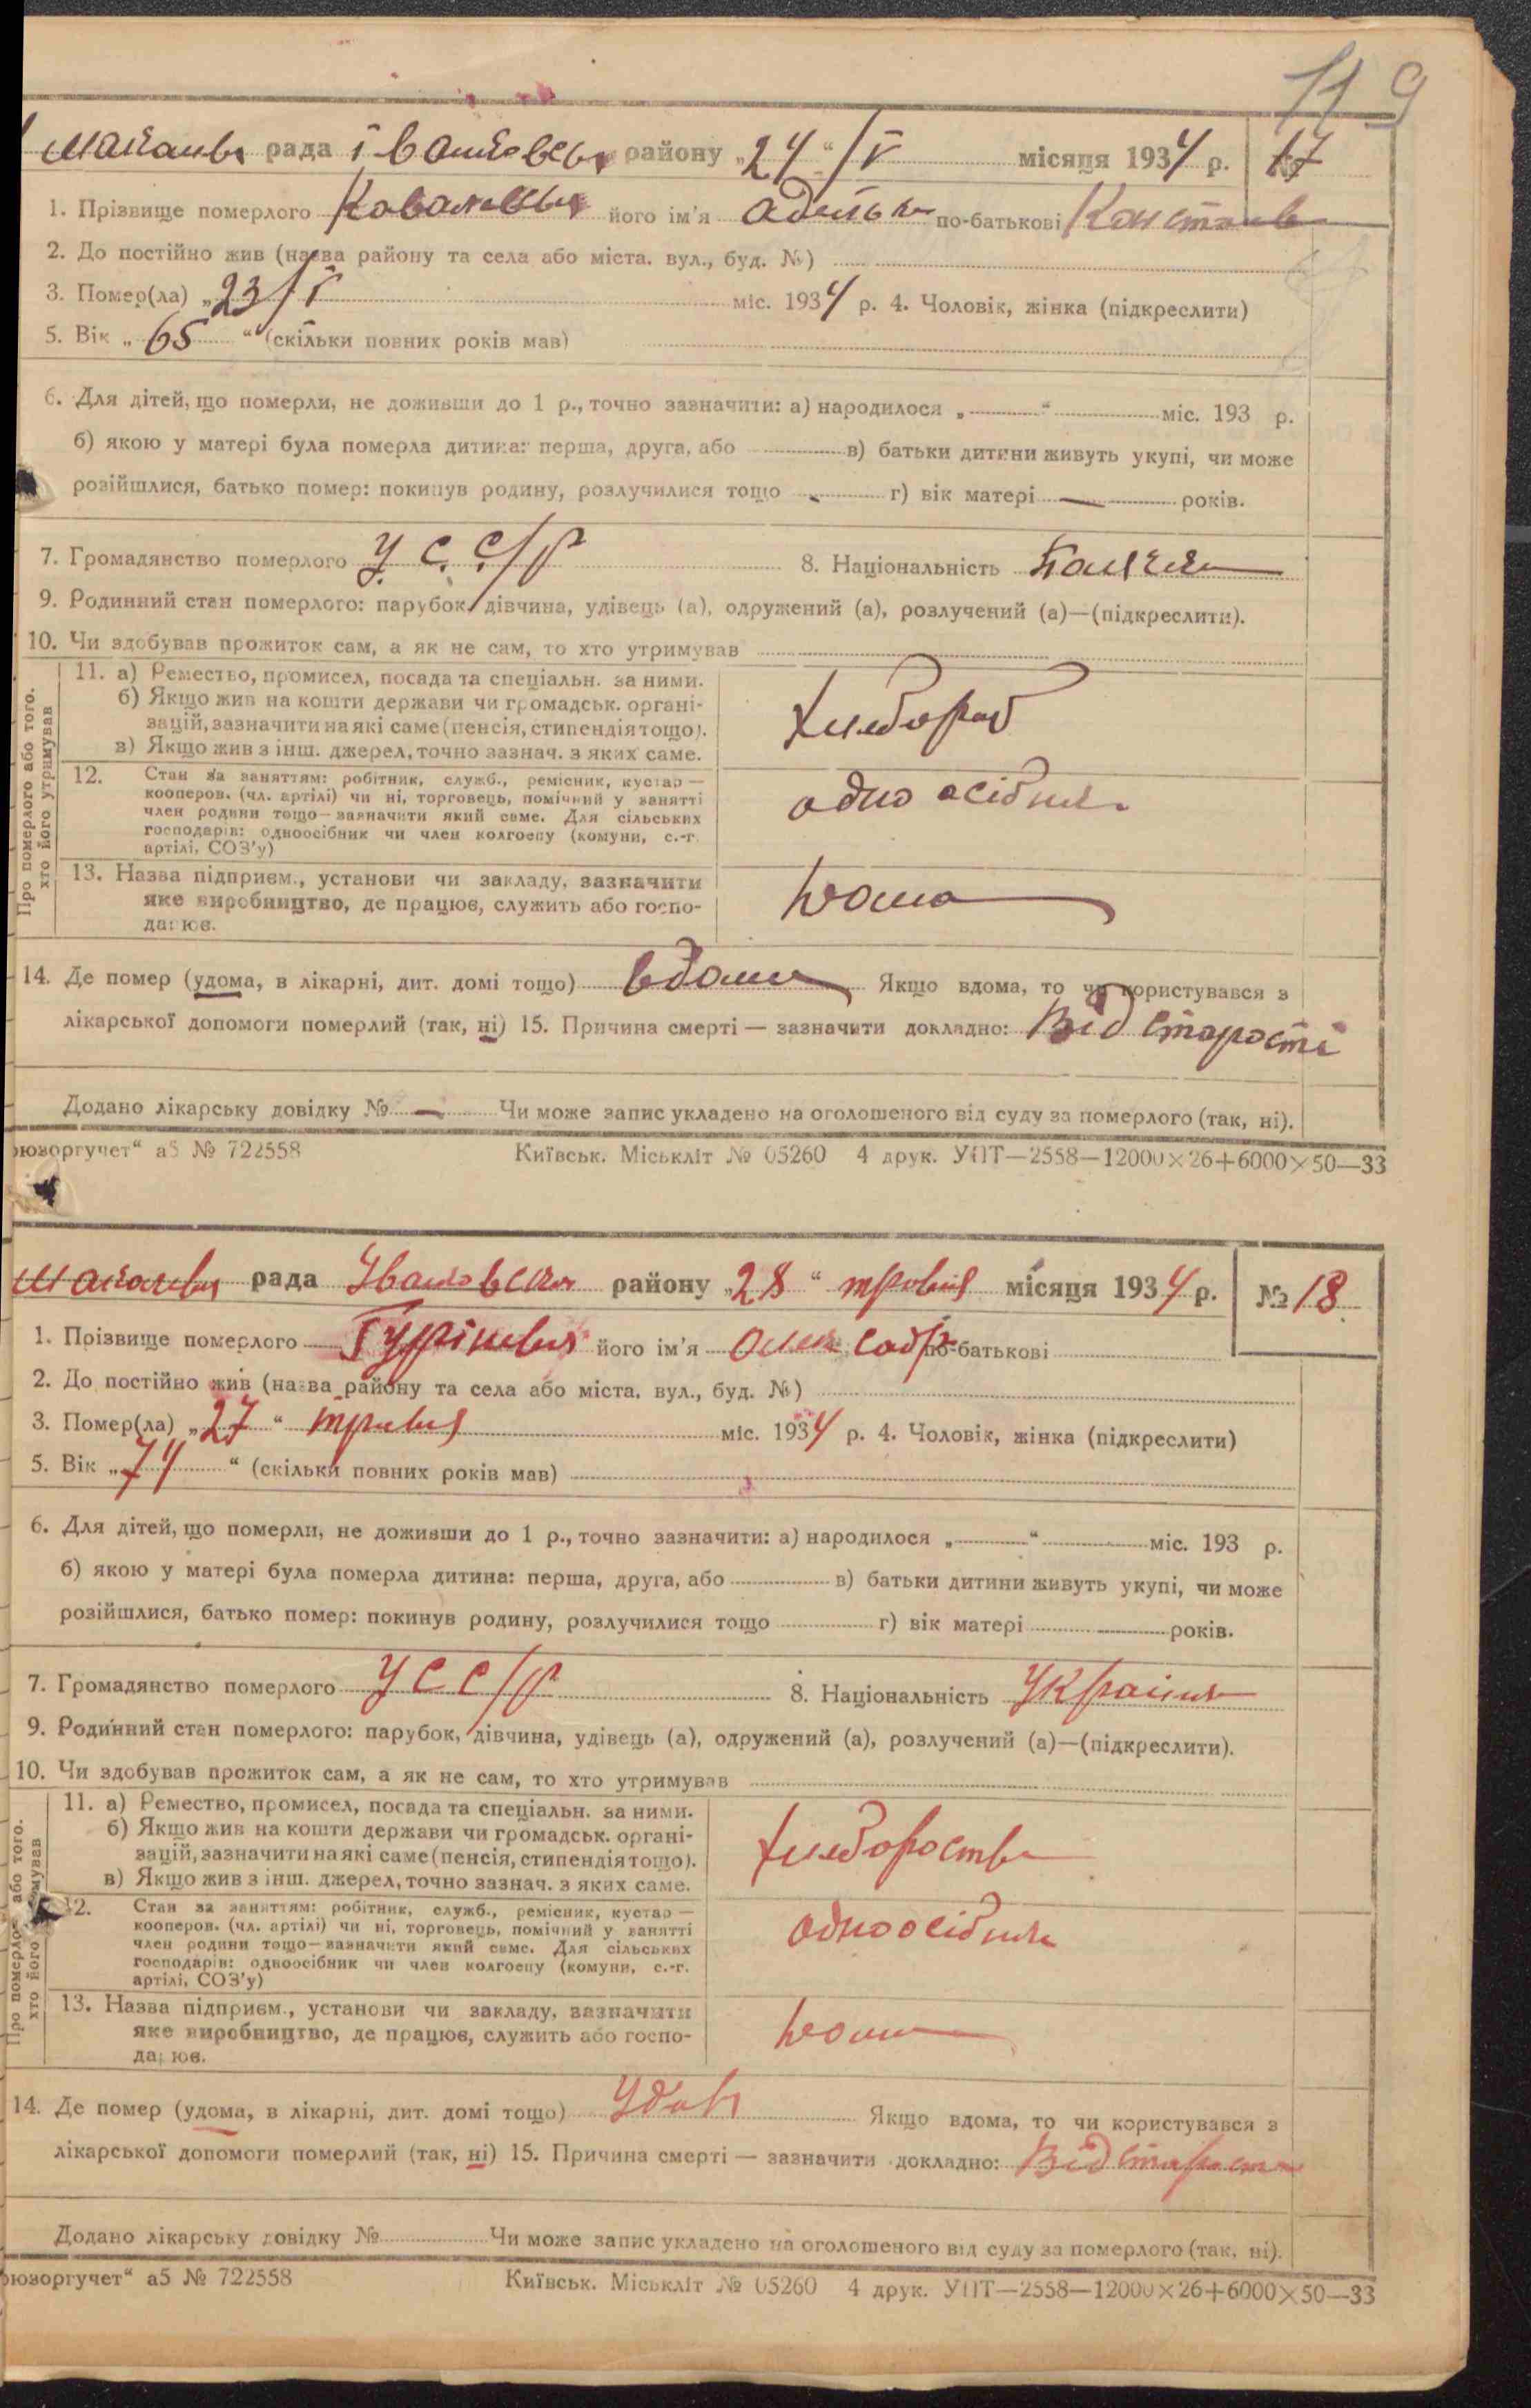 119
рада району „24“ / V місяця 1934 р. 17
1. Прізвище померлого його ім'я по-батькові
2. До постійно жив (назва району та села або міста, вул., буд. №)
3. Помер(ла) „23/V міс. 1934 р. 4. Чоловік, жінка (підкреслити)
5. Вік „65“ (скільки повних років мав)
6. Для дітей, що померли, не доживши до 1 р., точно зазначити: а) народилося „ “ міс. 193 р.
б) якою у матері була померла дитина: перша, друга, або в) батьки дитини живуть укупі, чи може
розійшлися, батько помер: покинув родину, розлучилися тощо г) вік матері — років.
7. Громадянство померлого У.С.С/Р 8. Національність
9. Родинний стан померлого: парубок, дівчина, удівець (а), одружений (а), розлучений (а)—(підкреслити).
10. Чи здобував прожиток сам, а як не сам, то хто утримував
Про померлого або того.
хто його утримував
11. а) Ремество, промисел, посада та спеціальн. за ними.
б) Якщо жив на кошти держави чи громадськ. органі-
зацій, зазначити на які саме (пенсія, стипендія тощо).
в) Якщо жив з інш. джерел, точно зазнач. з яких саме.
хлібороб
12. Стан за заняттям: робітник, служб., ремісник, кустар —
кооперов. (чл. артілі) чи ні, торговець, помічний у занятті
член родини тощо—зазначити який саме. Для сільських
господарів: одноосібник чи член колгоспу (комуни, с.-г.
артілі, СОЗ'у)
13. Назва підприєм., установи чи закладу, зазначити
яке виробництво, де працює, служить або госпо-
дарює.
14. Де помер (удома, в лікарні, дит. домі тощо) вдома Якщо вдома, то чи користувався з
лікарської допомоги померлий (так, ні) 15. Причина смерті — зазначити докладно: Від старости
Додано лікарську довідку № — Чи може запис укладено на оголошеного від суду за померлого (так, ні).
юзоргучет“ а5 № 722558 Київськ. Міськліт № 05260 4 друк. УПТ—2558—12000×26+6000×50—33
рада району „28“ травня місяця 1934 р. № 18
1. Прізвище померлого його ім'я по-батькові
2. До постійно жив (назва району та села або міста, вул., буд. №)
3. Помер(ла) „27“ травня міс. 1934 р. 4. Чоловік, жінка (підкреслити)
5. Вік „74“ (скільки повних років мав)
6. Для дітей, що померли, не доживши до 1 р., точно зазначити: а) народилося „ “ міс. 193 р.
б) якою у матері була померла дитина: перша, друга, або в) батьки дитини живуть укупі, чи може
розійшлися, батько помер: покинув родину, розлучилися тощо г) вік матері років.
7. Громадянство померлого УСС/Р 8. Національність
9. Родинний стан померлого: парубок, дівчина, удівець (а), одружений (а), розлучений (а)—(підкреслити).
10. Чи здобував прожиток сам, а як не сам, то хто утримував
11. а) Ремество, промисел, посада та спеціальн. за ними.
б) Якщо жив на кошти держави чи громадськ. органі-
зацій, зазначити на які саме (пенсія, стипендія тощо).
в) Якщо жив з інш. джерел, точно зазнач. з яких саме.
12. Стан за заняттям: робітник, служб., ремісник, кустар —
кооперов. (чл. артілі) чи ні, торговець, помічний у занятті
член родини тощо—зазначити який саме. Для сільських
господарів: одноосібник чи член колгоспу (комуни, с.-г.
артілі, СОЗ'у)
13. Назва підприєм., установи чи закладу, зазначити
яке виробництво, де працює, служить або госпо-
дарює.
14. Де помер (удома, в лікарні, дит. домі тощо) Якщо вдома, то чи користувався з
лікарської допомоги померлий (так, ні) 15. Причина смерті — зазначити докладно: Від старости
Додано лікарську довідку № Чи може запис укладено на оголошеного від суду за померлого (так, ні).
юзоргучет“ а5 № 722558 Київськ. Міськліт № 05260 4 друк. УПТ—2558—12000×26+6000×50—33